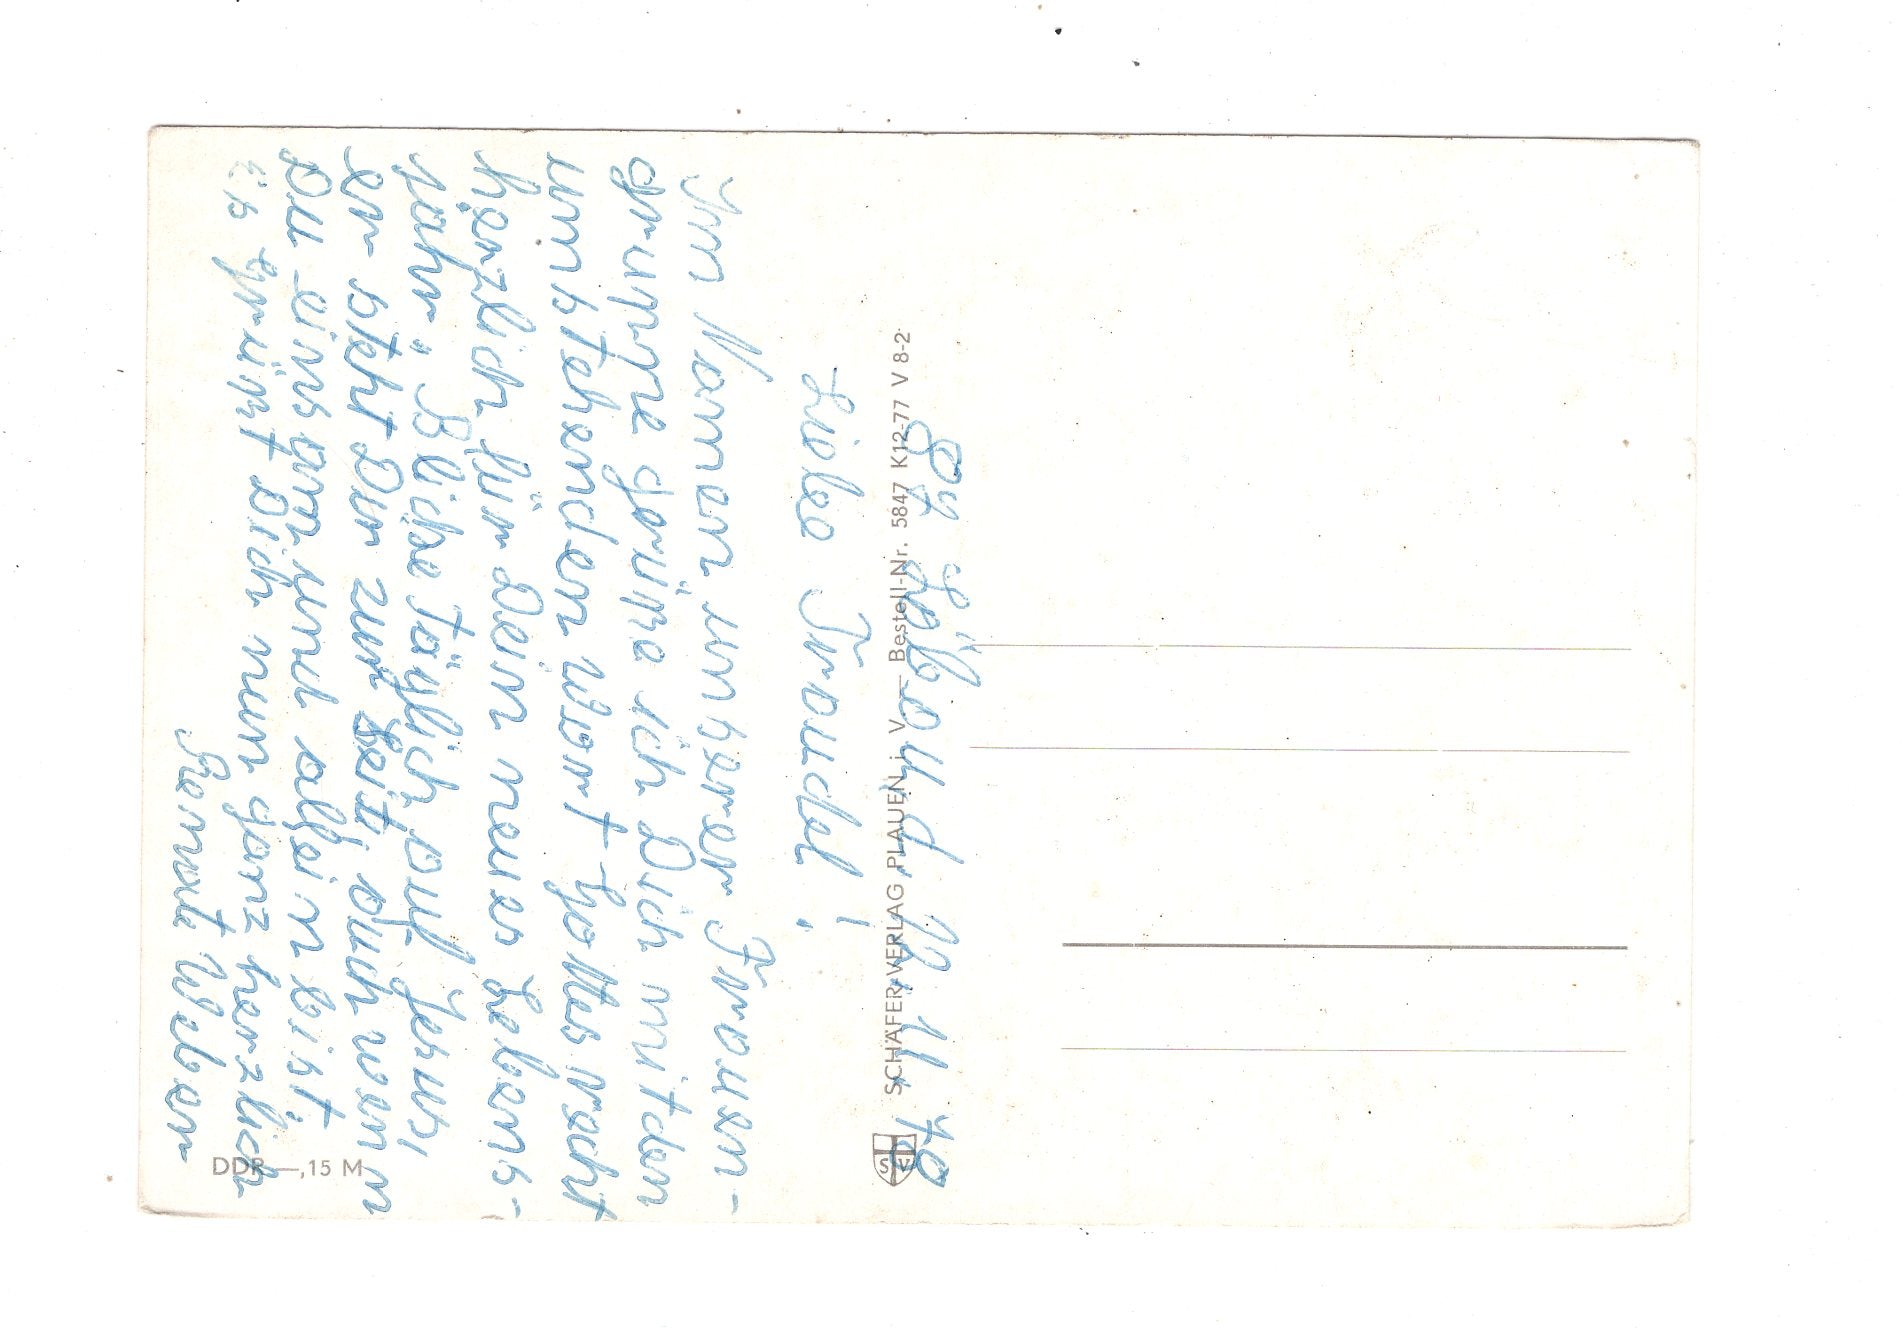 87 Löbau, d. 11. 11. 78
Liebe Traudel!
Im Namen unserer Frauen-
gruppe grüße ich Dich mit den
umstehenden Wort Gottes recht
herzlich für Dein neues Lebens-
jahr. Blicke täglich auf Jesus,
er steht Dir zur Seit, auch wenn
Du einsam und allein bist.
Es grüßt Dich nun ganz herzlich
Renate Weber
SCHÄFER-VERLAG PLAUEN i. V. — Bestell-Nr. 5847 K12-77 V 8-2
S V
DDR —,15 M